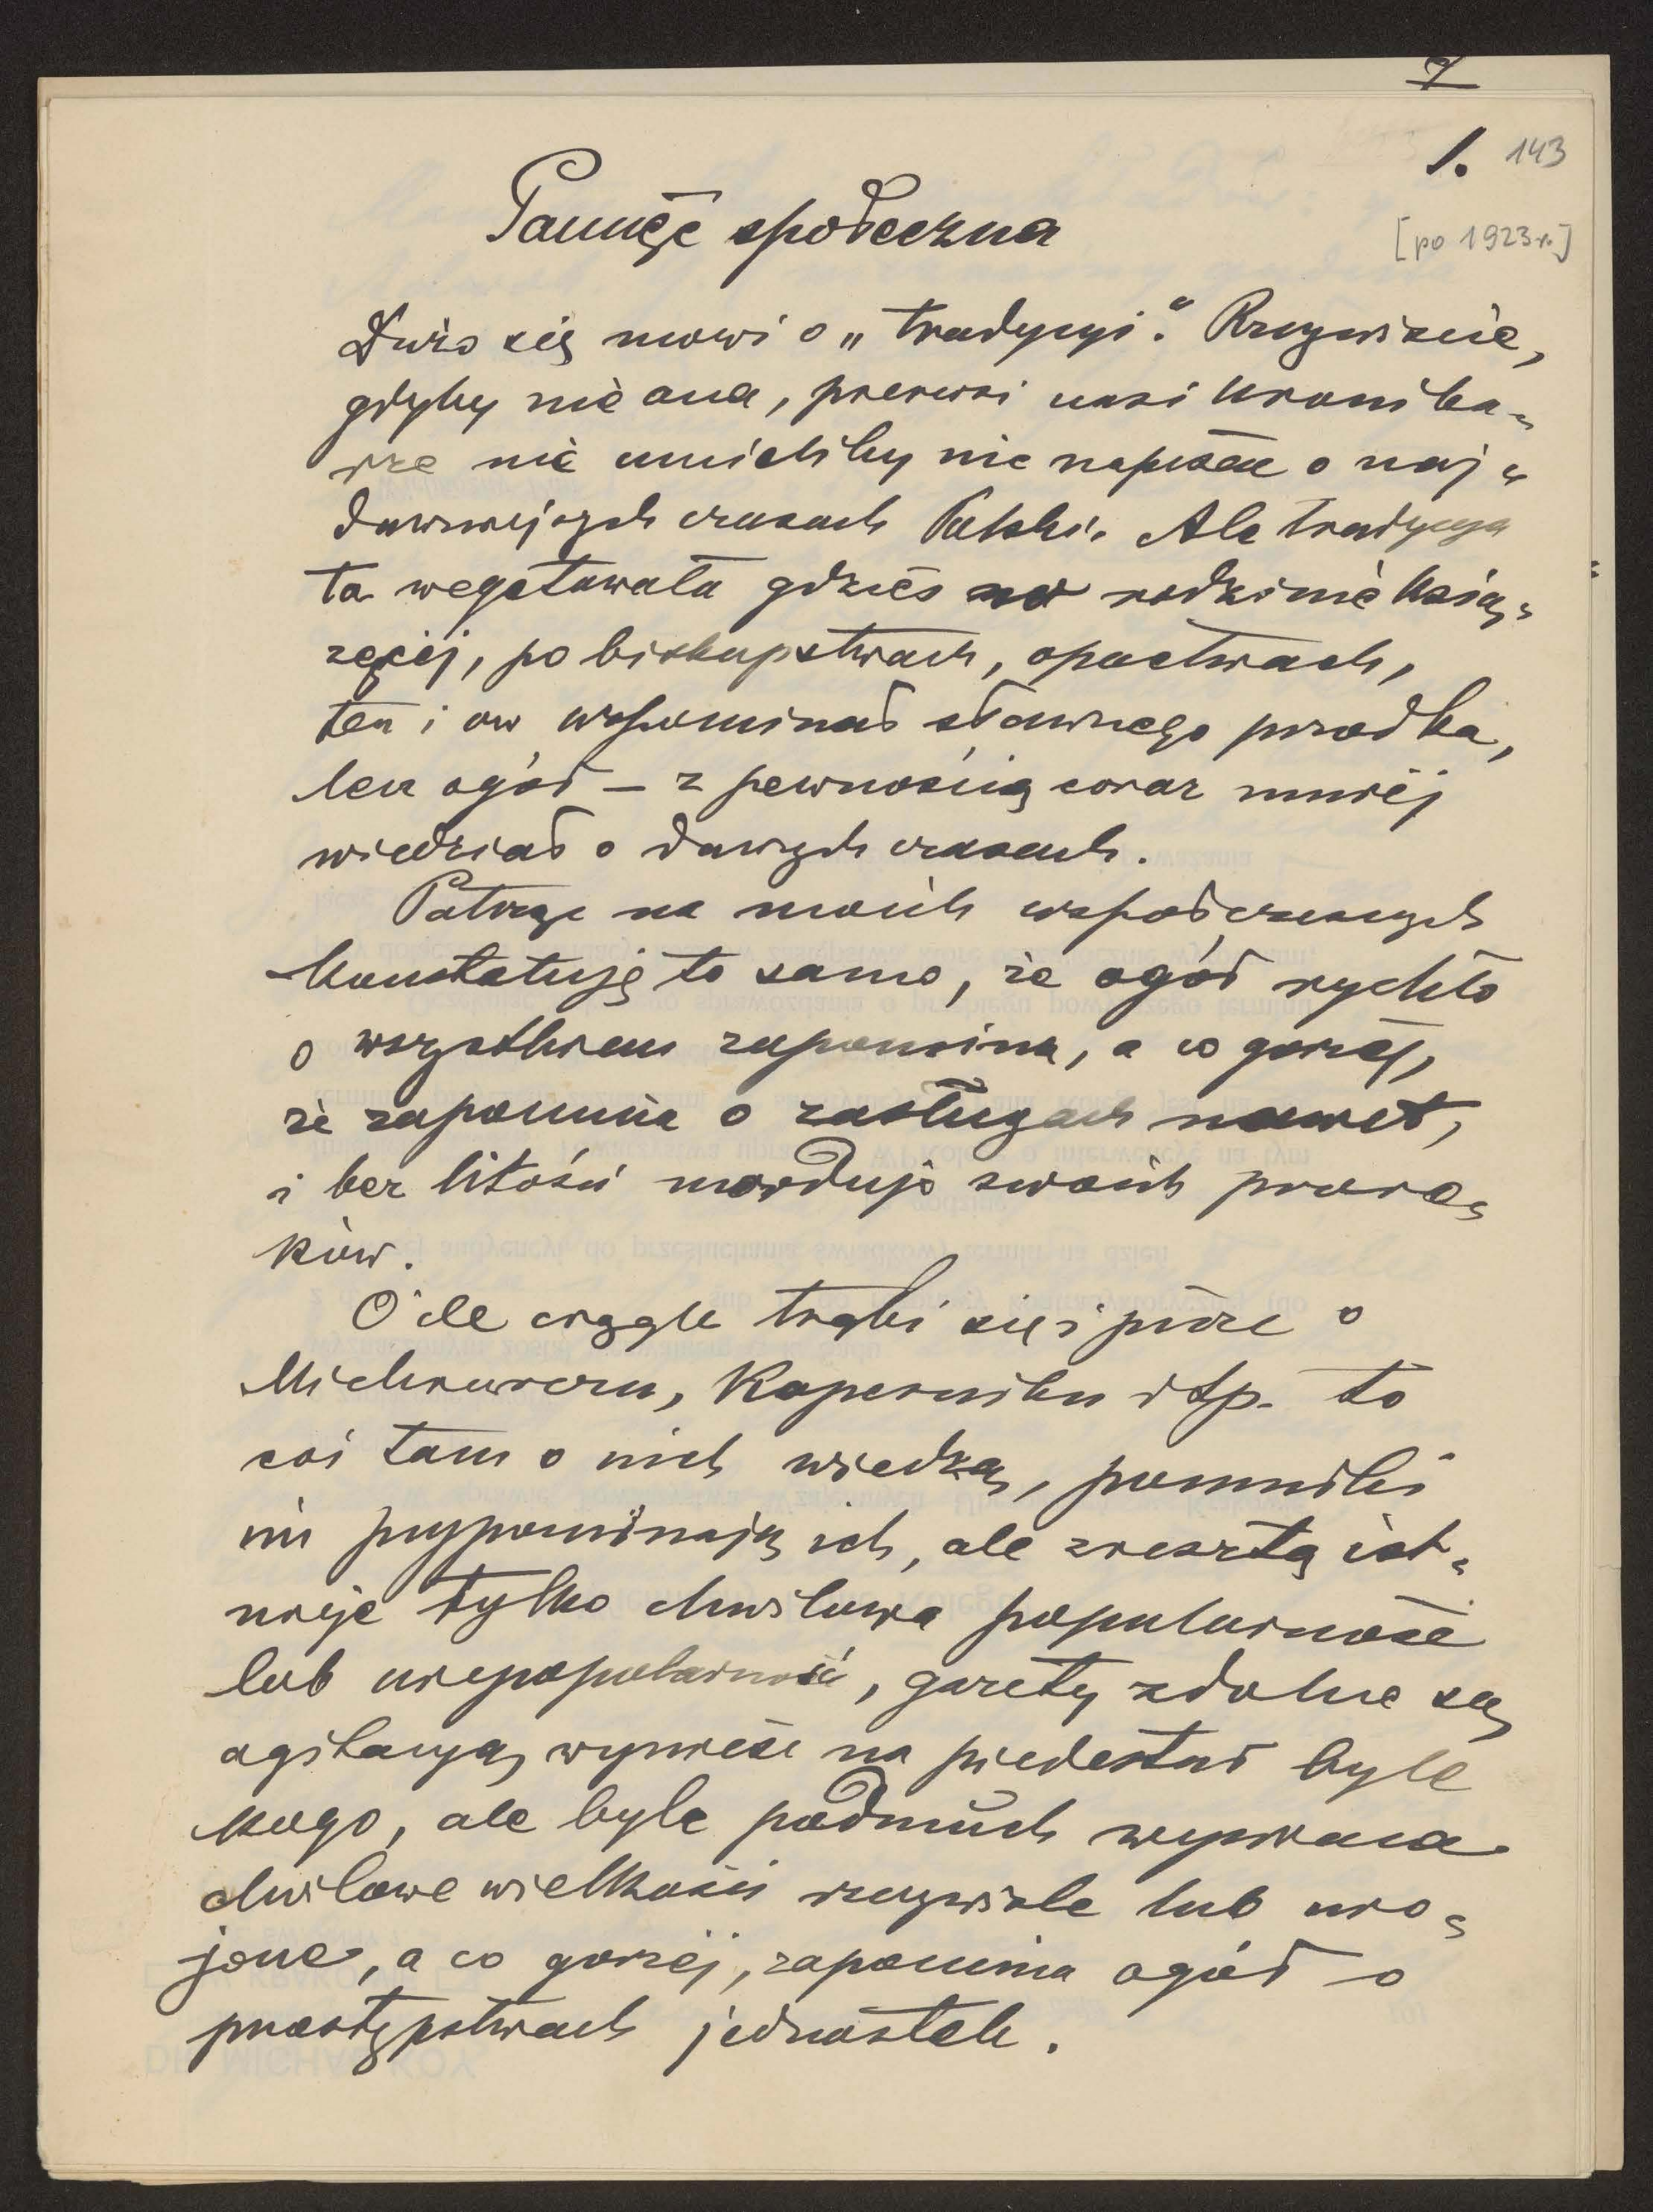 7
1. 143
Pamięć społeczna
[po 1923 r.]
Dużo się mówi o „tradycyi". Rzeczywiście,
gdyby nie ona, pierwsi nasi kronika-
rze nie umieliby nic napisać o naj-
dawniejszych czasach Polski. Ale tradycya
ta wegetowała gdzieś w rodzinie ksią-
żęcej, po biskupstwach, opactwach,
ten i ów wspominał sławnego przodka,
lecz ogół – z pewnością coraz mniej
wiedział o dawnych czasach.
Patrzę na moich współczesnych
konstatuję to samo, że ogół rychło
o wszystkiem zapomina, a co gorzej,
że zapomina o zasługach nawet,
i bez litości morduje swoich proro-
ków.
O ile ciągle trąbi się i pisze o
Mickiewiczu, Koperniku itp. to
coś tam o nich wiedzą, pomniki
im przypominają ich, ale zresztą ist-
nieje tylko chwilowa popularność
lub niepopularność, gazety zdolne są
agitacyą wynieść na piedestał byle
kogo, ale byle podmuch wywraca
chwilowe wielkości rzeczywiste lub uro-
jone, a co gorzej, zapomina ogół o
przestępstwach jednostek.